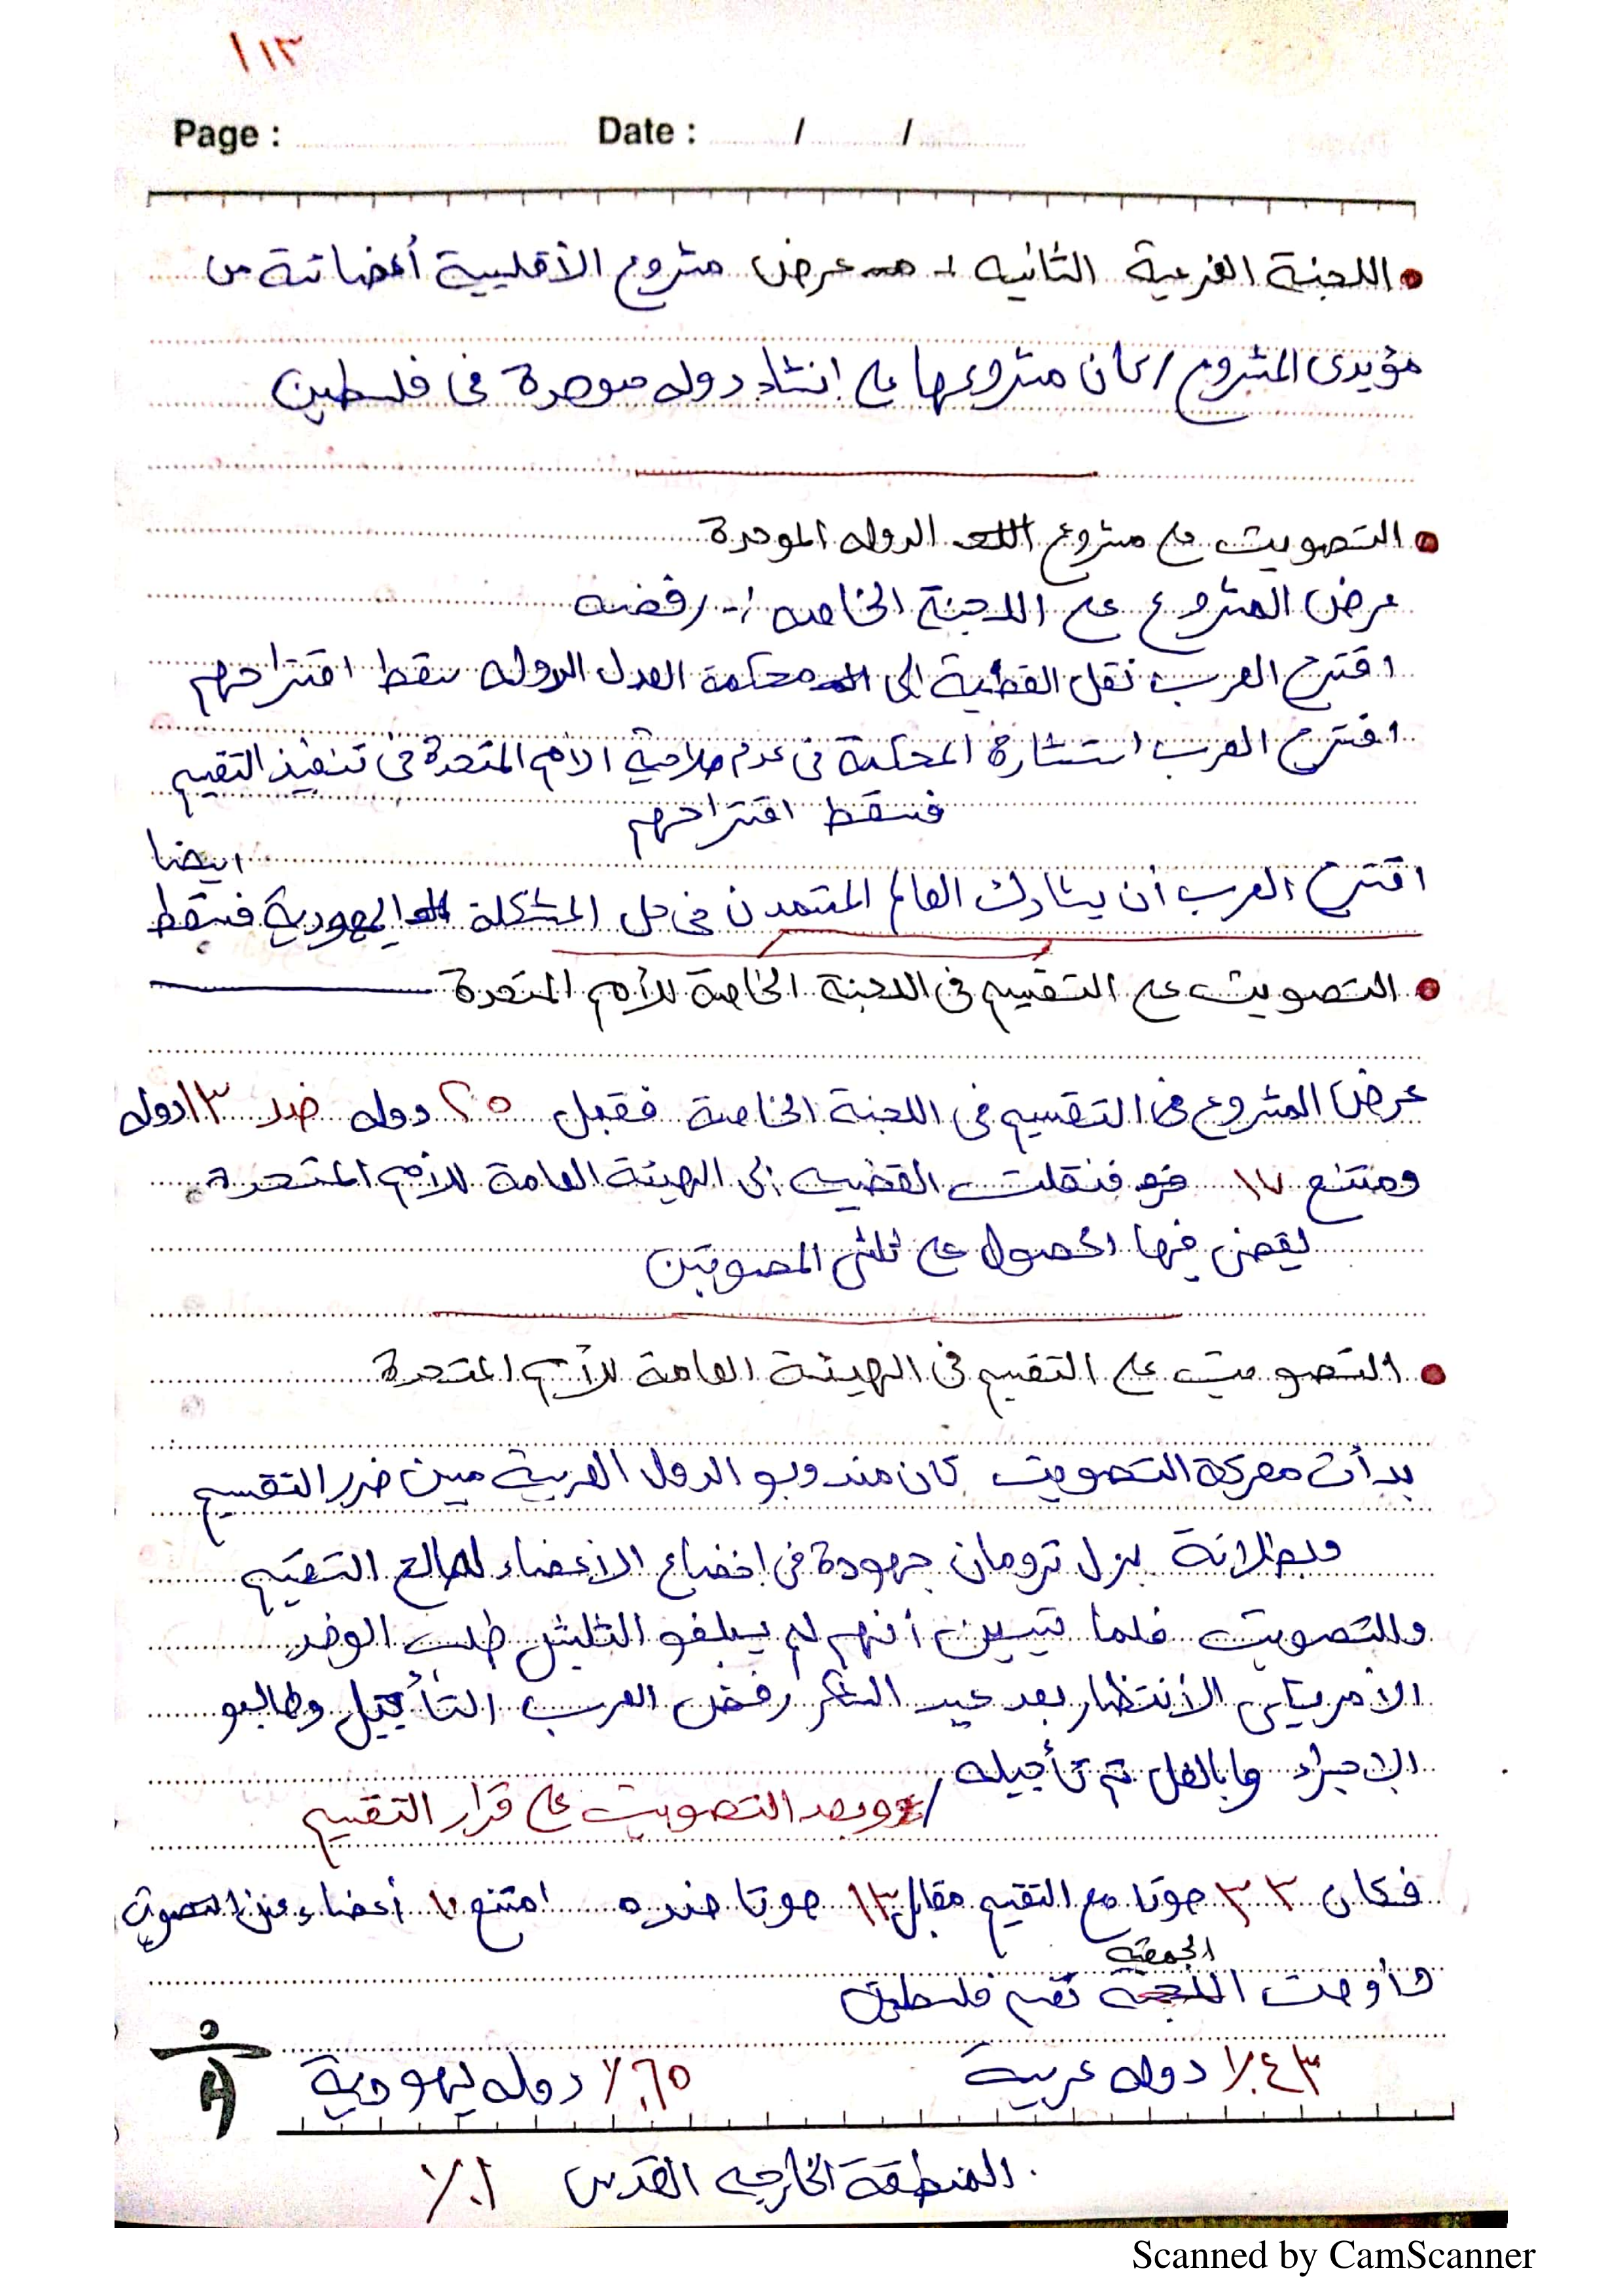 ١١٣
Page : Date : / /
اللجنة الفرعية الثانيه :- عرض مشروع الأقلييية أعضائة من
مؤيدى المشروع / كان مشروعها على انشاء دوله موحدة فى فلسطين
التصويت على مشروع الدوله الموحدة
عرض المشروع على اللجنة الخاصه :- رفضه
اقترح العرب نقل القضية الى محكمة العدل الدوله سقط اقتراحهم
اقترح العرب استشارة المحكمة فى عدم صلاحية الأمم المتحدة فى تنفيذ التقيم
فسقط اقتراحهم
ايضا
اقترح العرب أن يشارك العالم المتمدن فى حل المشكلة اليهودية فسقط
التصويت على التقسيم فى اللجنة الخاصة للأمم المتحدة
عرض المشروع فى التقسيم فى اللجنة الخاصة فقبل ٢٥ دوله ضد ١٣ دوله
ومتنع ١٧ فنقلت القضيه الى الهيئة العامة للأمم المتحدة
يقضى فيها الحصول على ثلثى المصوتين
التصويت على التقيم فى الهيئة العامة للأمم المتحدة
بدأت معركة التصويت كان مندوبو الدول العربية مبين ضرر التقسيم
وبطلانة بزل ترومان جهودة فى اخضاع الأعضاء لصالح التقيم
وللتصويت فلما تبيين أنهم لم يبلغو الثلثين طلب الوفد
الأمريكى الأنتظار بعد عيد الشكر رفض العرب التأجيل وطالبو
الإجراء وبالفعل تم تأجيله
/ وبعد التصويت على قرار التقييم
فكان ٣٣ صوتا مع التقيم مقابل ١٣ صوتا ضده امتنع ١٠ أعضاء عن التصويت
الجمعية
وأوصت تقسم فلسطين
٤٣٪ دوله عربية ٦٥٪ دوله يهودية
المنطقة الخارجيه القدس ١٪
Scanned by CamScanner